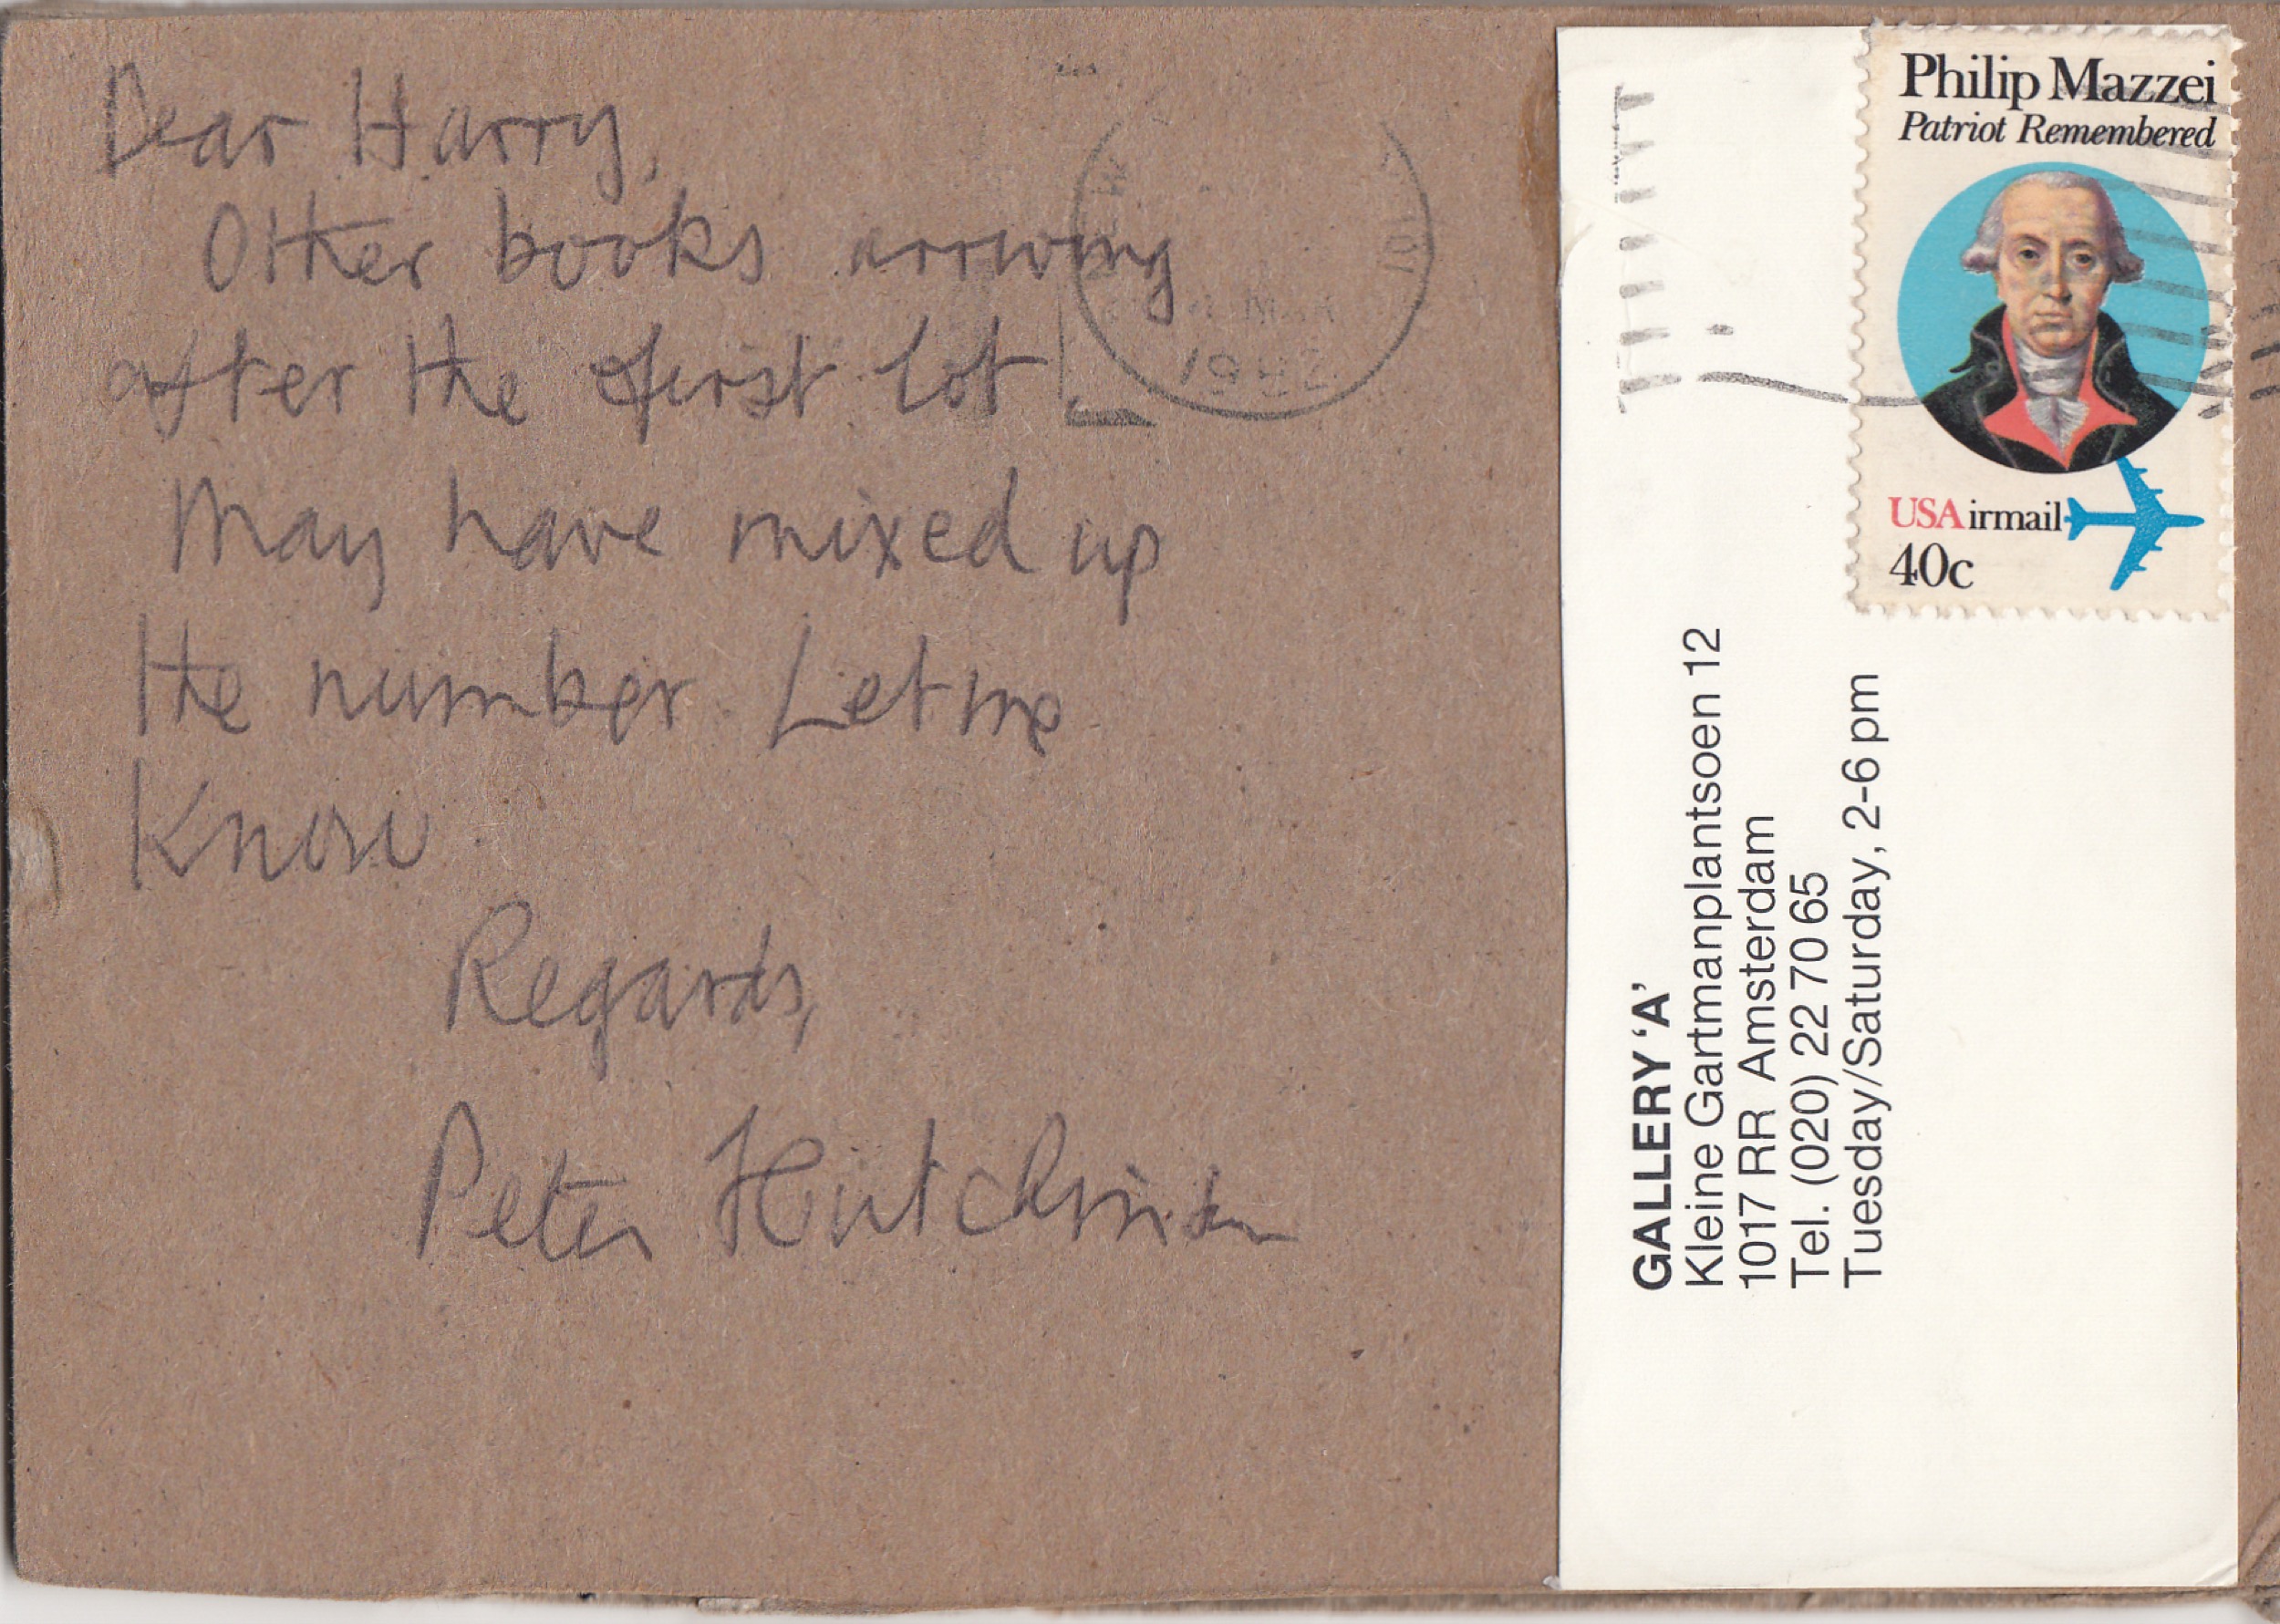 Dear Harry,
Other books arriving
after the first lot.
May have mixed up
the number. Let me
know.
Regards,
Peter Hutchinson
MAR
1982
Philip Mazzei
Patriot Remembered
USAirmail
40c
GALLERY ‘A’
Kleine Gartmanplantsoen 12
1017 RR Amsterdam
Tel. (020) 22 70 65
Tuesday/Saturday, 2-6 pm